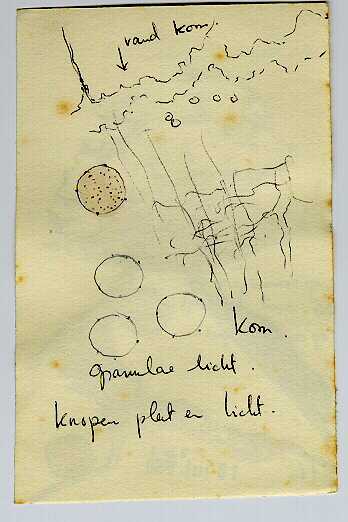 rand kom.
kom.
granulae licht.
knopen plat en licht.